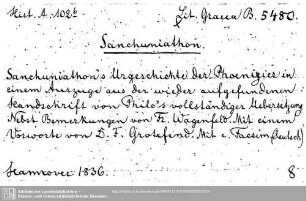 Hist. A. 102ᵈ
Lit. Graeca B. 5480.
Sanchuniathon.
Sanchuniathon's Urgeschichte der Phoenizier in
einem Auszuge aus der wieder aufgefundenen
Handschrift von Philo's vollständiger Uebersetzung
Nebst Bemerkungen von Fr. Wagenfeld. Mit einem
Vorworte von D. F. Grotefend. Mit e. Facsim. (Deutsch)
Hannover 1836.
8